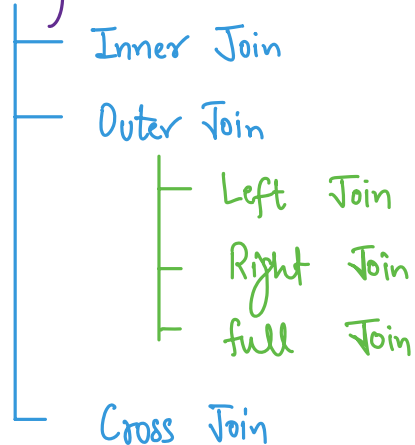 Inner Join
Outer Join
Left Join
Right Join
full Join
Cross Join